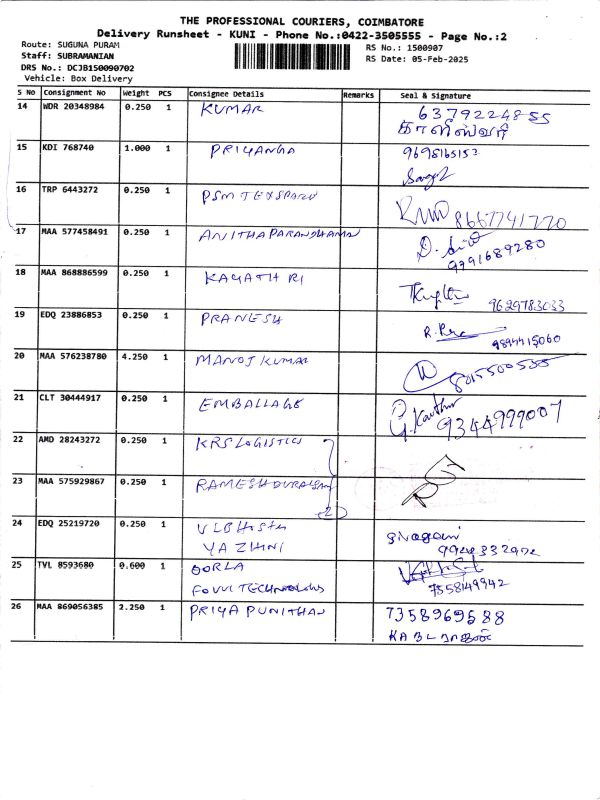 THE PROFESSIONAL COURIERS, COIMBATORE
Delivery Runsheet - KUNI - Phone No.:0422-3505555 - Page No.:2
Route: SUGUNA PURAM
Staff: SUBRAMANIAN
DRS No.: DCJB150090702
Vehicle: Box Delivery
RS No.: 1500907
RS Date: 05-Feb-2025
S No Consignment No Weight PCS Consignee Details Remarks Seal & Signature
14 WDR 20348984 0.250 1 KUMAR 6379224855
காளீஸ்வரி
15 KDI 768740 1.000 1 PRIYANGA 9698165153
16 TRP 6443272 0.250 1 PSM TEXSPARK 8667741770
17 MAA 577458491 0.250 1 ANITHA PARANDHAMAN
9791689280
18 MAA 868886599 0.250 1 KAYATHRI
9629783033
19 EDQ 23886853 0.250 1 PRANESH
9894415060
20 MAA 576238780 4.250 1 MANOJ KUMAR
8015500535
21 CLT 30444917 0.250 1 EMBALLAGE G. Karthi
9344999007
22 AMD 28243272 0.250 1 KRS LOGISTICS
23 MAA 575929867 0.250 1 RAMESH DURAISAMY
2
24 EDQ 25219720 0.250 1 VLB Hostel
YAZHINI
25 TVL 8593680 0.600 1 OORLA
TECHNOLOGIES 7558149942
26 MAA 869056385 2.250 1 PRIYA PUNITHAN 7358969588